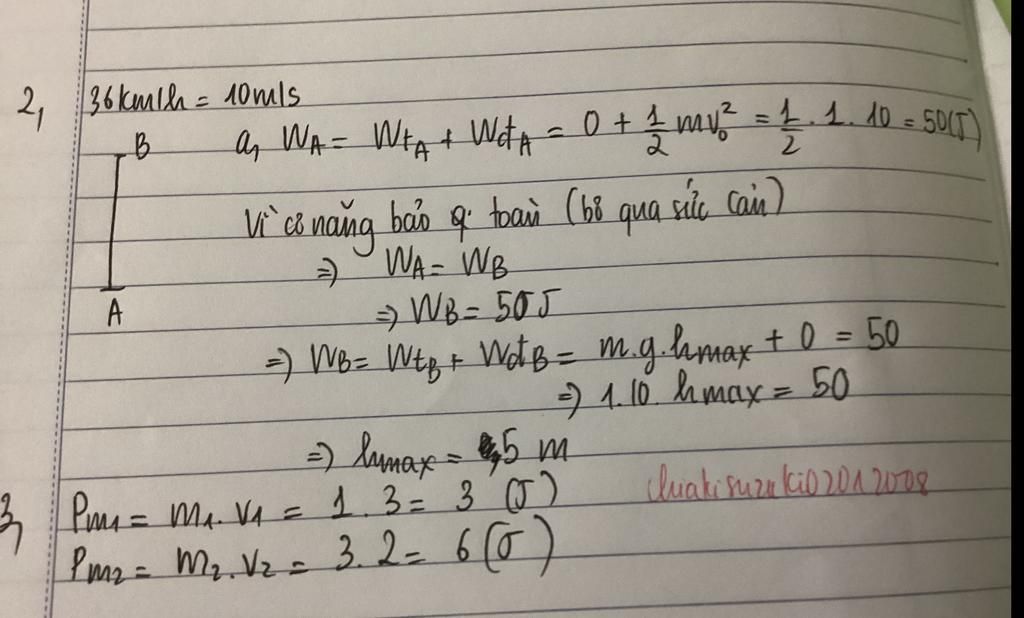 2, 36km/h = 10m/s
B a, W_A = Wt_A + Wđ_A = 0 + 1/2 mv₀² = 1/2 . 1 . 10 = 50(J)
Vì cơ năng bảo toàn (bỏ qua sức cản)
=> W_A = W_B
A => W_B = 50J
=> W_B = Wt_B + Wđ_B = m.g.hmax + 0 = 50
=> 1.10. hmax = 50
=> hmax = 5 m
3, Pm₁ = m₁.v₁ = 1.3 = 3 (J)
Pm₂ = m₂.v₂ = 3.2 = 6 (J)